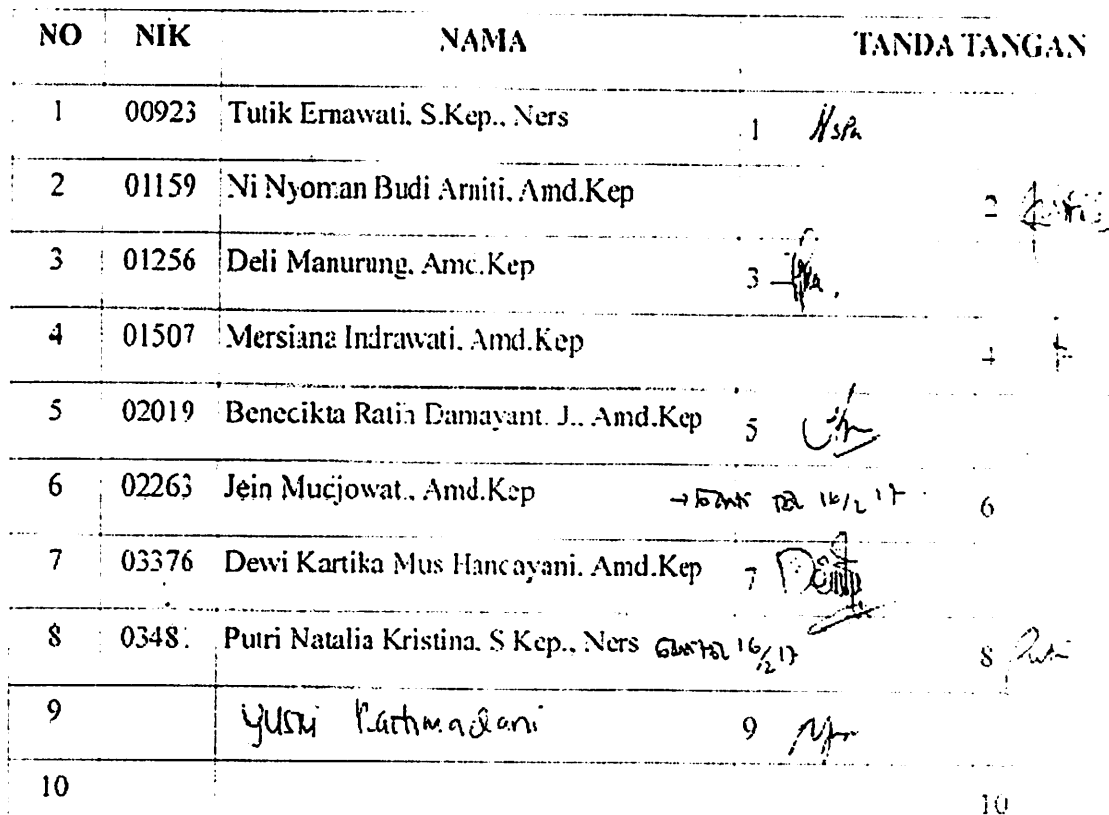 NO NIK NAMA TANDA TANGAN
1 00923 Tutik Ernawati, S.Kep., Ners 1
2 01159 Ni Nyoman Budi Arniti, Amd.Kep 2
3 01256 Deli Manurung, Amd.Kep 3
4 01507 Mersiana Indrawati, Amd.Kep 4
5 02019 Benecikta Ratih Damayant. J., Amd.Kep 5
6 02263 Jein Mucjowat., Amd.Kep → 16/2 17 6
7 03376 Dewi Kartika Mus Hancayani, Amd.Kep 7
8 0348. Putri Natalia Kristina, S Kep., Ners 16/2 17 8 Putri
9 Yusni Rathmadani 9
10 10